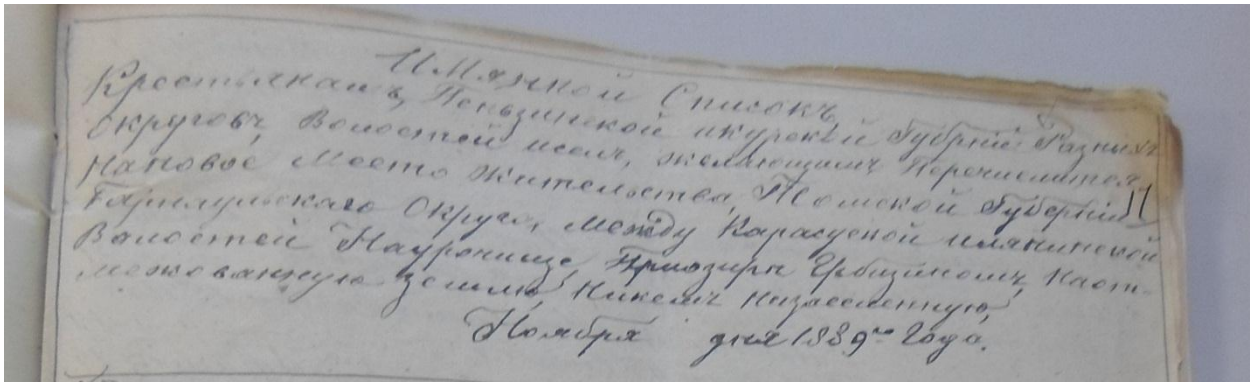 Имянной Списокъ
Крестьянамъ, Пеньзинской икурской Губрній Разныхъ
Округовъ, Волостей иселъ, желающимъ Перечислится
Нановое Место Жительства, Томской Губерніи
11
Барнаульскаго Округа, между Карасуской и
Валостей Науронище, Приозиры наот-
межованную Землю, Никемъ Низаселенную,
Ноября дня 1889го Года.